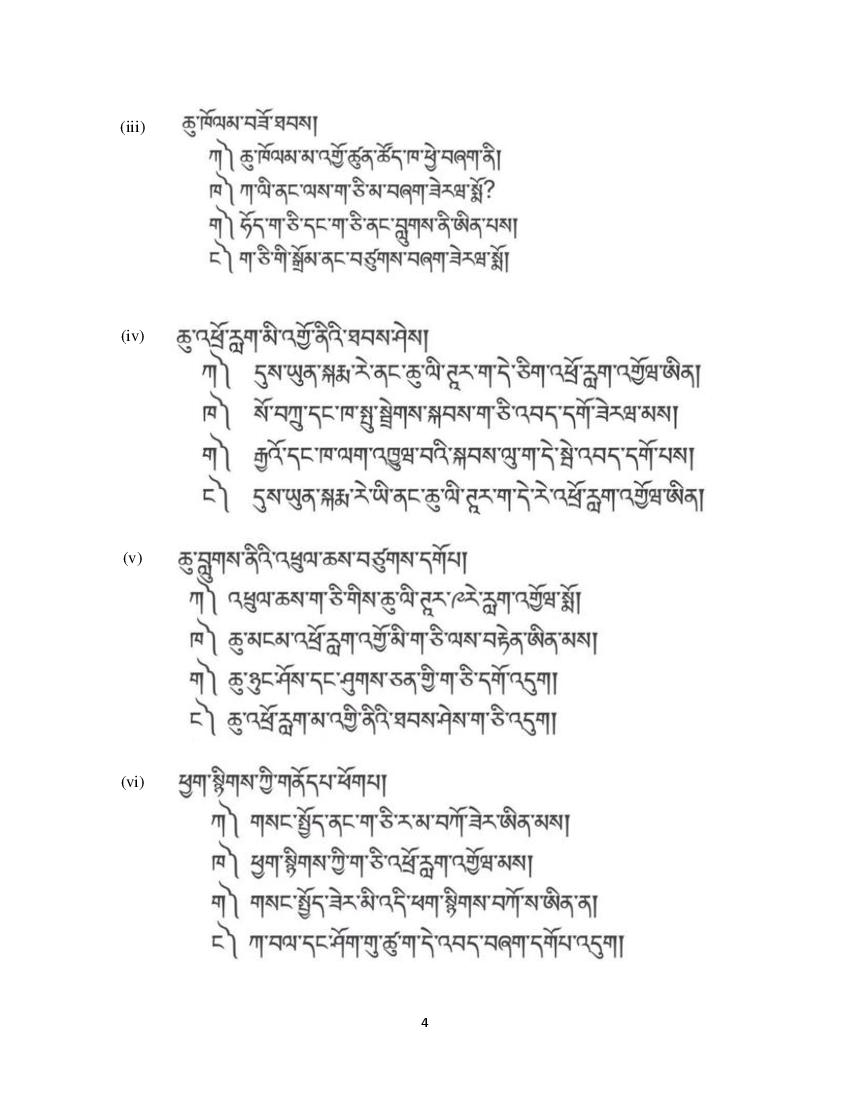 (iii) ཆུ་ཁོལམ་བཟོ་ཐབས།
ཀ༽ ཆུ་ཁོལམ་མ་འགྱོ་ཚུན་ཚོད་ཁ་ཕྱེ་བཞག་ནི།
ཁ༽ ཀ་ལི་ནང་ལས་ག་ཅི་མ་བཞག་ཟེརཝ་སྨོ?
ག༽ ཧོད་ག་ཅི་དང་ག་ཅི་ནང་བླུགས་ནི་ཨིན་པས།
ང༽ ག་ཅི་གི་སྒྲོམ་ནང་བཙུགས་བཞག་ཟེརཝ་སྨོ།
(iv) ཆུ་འཕྲོ་རླག་མི་འགྱོ་ནིའི་ཐབས་ཤེས།
ཀ༽ དུས་ཡུན་སྐརྨ་རེ་ནང་ཆུ་ལི་ཊར་ག་དེ་ཅིག་འཕྲོ་རླག་འགྱོཝ་ཨིན།
ཁ༽ སོ་བཀྲུ་དང་ཁ་སྤུ་སྦྲེགས་སྐབས་ག་ཅི་འབད་དགོ་ཟེརཝ་མས།
ག༽ རྒྱའོ་དང་ཁ་ལག་འཁྱུཝ་བའི་སྐབས་ལུ་ག་དེ་སྦེ་འབད་དགོ་པས།
ང༽ དུས་ཡུན་སྐརྨ་རེ་ཡི་ནང་ཆུ་ལི་ཊར་ག་དེ་རེ་འཕྲོ་རླག་འགྱོཝ་ཨིན།
(v) ཆུ་བླུགས་ནིའི་འཕྲུལ་ཆས་བཙུགས་དགོཔ།
ཀ༽ འཕྲུལ་ཆས་ག་ཅི་གིས་ཆུ་ལི་ཊར་༩རེ་རླག་འགྱོཝ་སྨོ།
ཁ༽ ཆུ་མངམ་འཕྲོ་རླག་འགྱོ་མི་ག་ཅི་ལས་བརྟེན་ཨིན་མས།
ག༽ ཆུ་ཉུང་ཤོས་དང་ཤུགས་ཅན་གྱི་ག་ཅི་དགོ་འདུག།
ང༽ ཆུ་འཕྲོ་རླག་མ་འགྱི་ནིའི་ཐབས་ཤེས་ག་ཅི་འདུག།
(vi) ཕྱག་སྙིགས་ཀྱི་གནོདཔ་ཕོགཔ།
ཀ༽ གསང་སྤྱོད་ནང་ག་ཅི་ར་མ་བཀོ་ཟེར་ཨིན་མས།
ཁ༽ ཕྱག་སྙིགས་ཀྱི་ག་ཅི་འཕྲོ་རླག་འགྱོཝ་མས།
ག༽ གསང་སྤྱོད་ཟེར་མི་འདི་ཕག་སྙིགས་བཀོ་ས་ཨིན་ན།
ང༽ ཀ་བལ་དང་ཤོག་གུ་ཚུ་ག་དེ་འབད་བཞག་དགོཔ་འདུག།
4